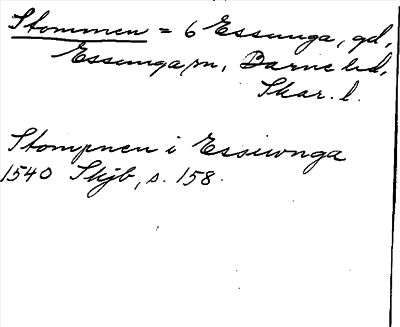 Stommen = 6 Essunga, gd,
Essunga sn, Barne hd,
Skar. l.
Stompnen i Essiwnga
1540 Skjb, s. 158.